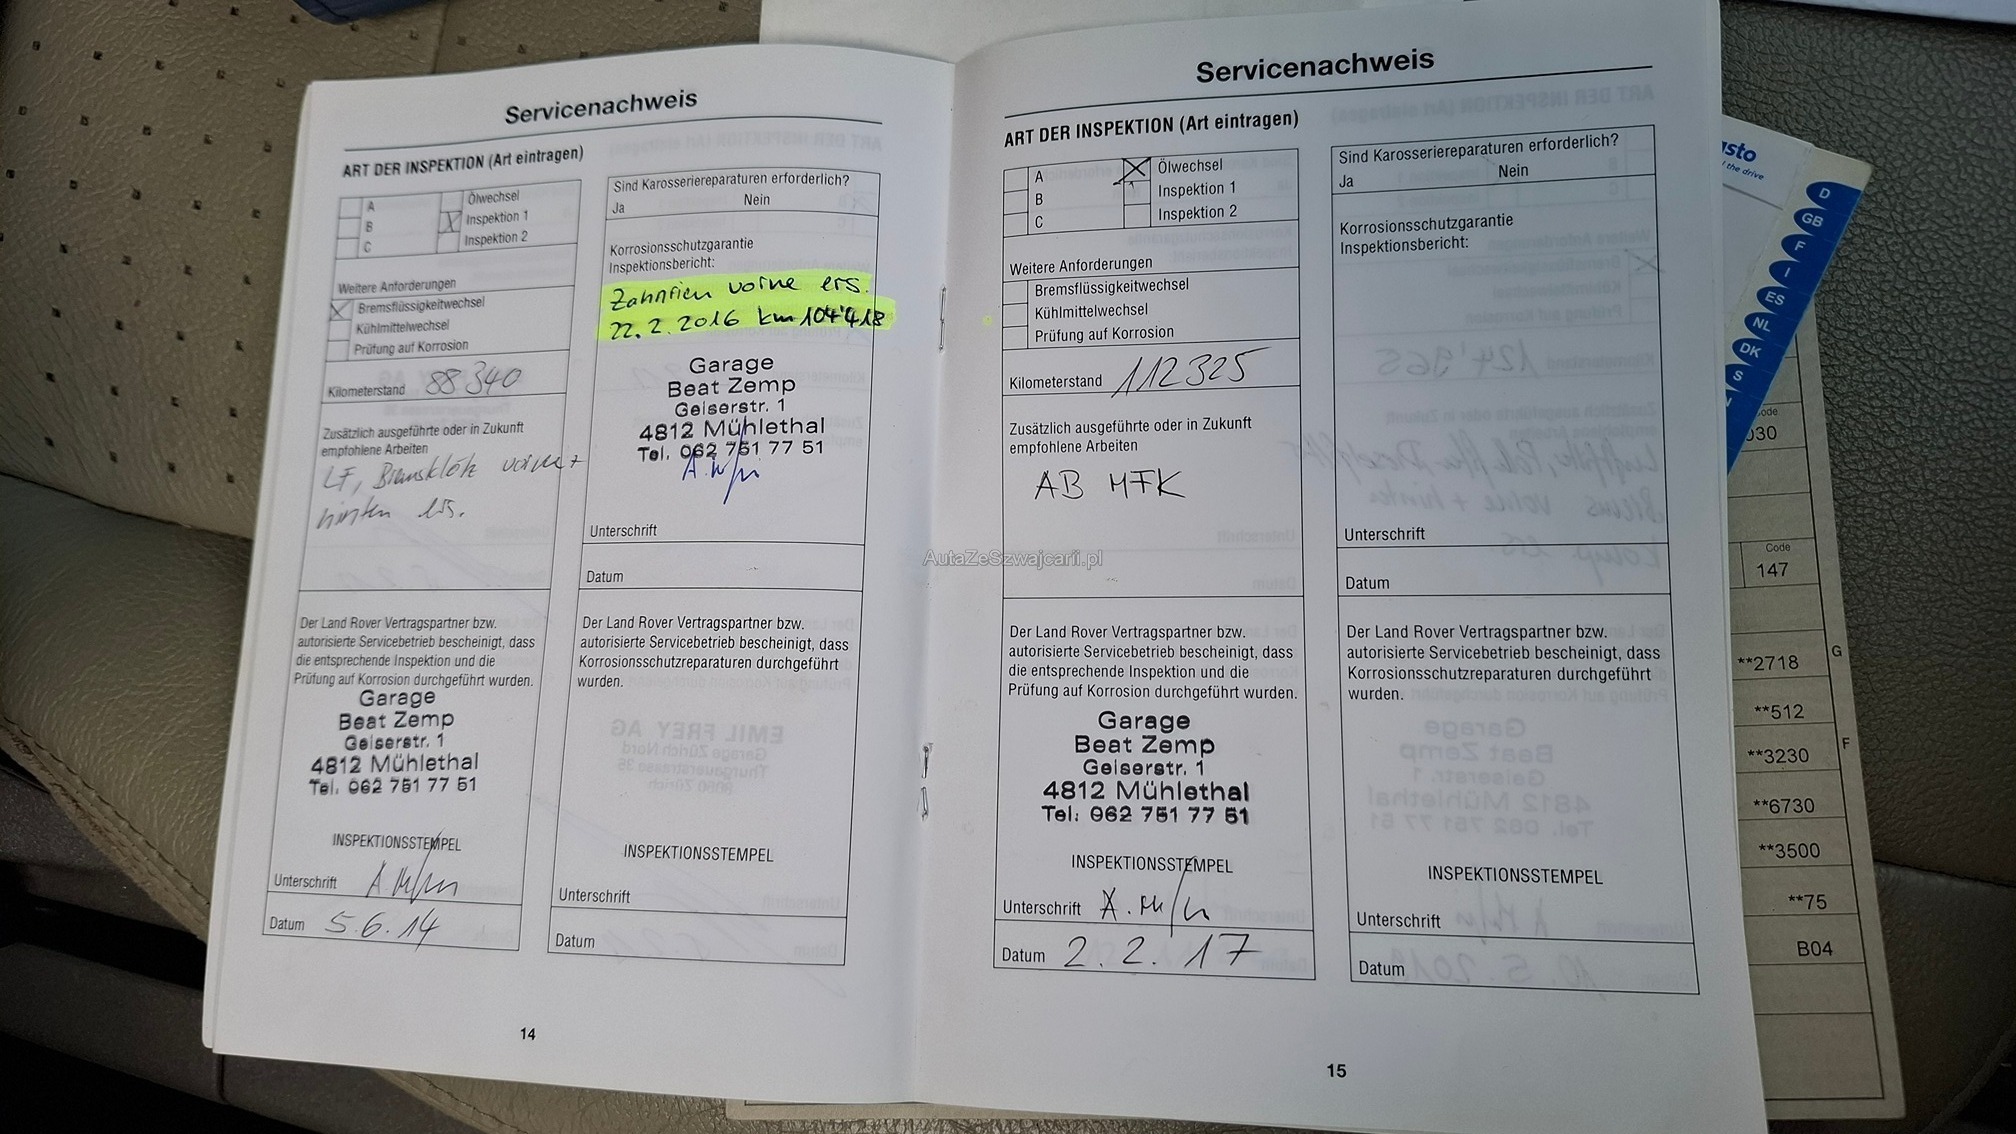 Servicenachweis
ART DER INSPEKTION (Art eintragen)
A
B
C
Ölwechsel
X Inspektion 1
Inspektion 2
Weitere Anforderungen
X Bremsflüssigkeitwechsel
Kühlmittelwechsel
Prüfung auf Korrosion
Kilometerstand 88340
Zusätzlich ausgeführte oder in Zukunft
empfohlene Arbeiten
LF, Bremsklötz vorne +
hinten ers.
Der Land Rover Vertragspartner bzw.
autorisierte Servicebetrieb bescheinigt, dass
die entsprechende Inspektion und die
Prüfung auf Korrosion durchgeführt wurden.
Garage
Beat Zemp
Geiserstr. 1
4812 Mühlethal
Tel. 062 751 77 51
INSPEKTIONSSTEMPEL
Unterschrift
Datum 5.6.14
Sind Karosseriereparaturen erforderlich?
Ja Nein
Korrosionsschutzgarantie
Inspektionsbericht:
Zahnrien vorne ers.
22.2.2016 km 104'418
Garage
Beat Zemp
Geiserstr. 1
4812 Mühlethal
Tel. 062 751 77 51
Unterschrift
Datum
Der Land Rover Vertragspartner bzw.
autorisierte Servicebetrieb bescheinigt, dass
Korrosionsschutzreparaturen durchgeführt
wurden.
INSPEKTIONSSTEMPEL
Unterschrift
Datum
14
Servicenachweis
ART DER INSPEKTION (Art eintragen)
A
B
C
X Ölwechsel
Inspektion 1
Inspektion 2
Weitere Anforderungen
Bremsflüssigkeitwechsel
Kühlmittelwechsel
Prüfung auf Korrosion
Kilometerstand 112325
Zusätzlich ausgeführte oder in Zukunft
empfohlene Arbeiten
AB MFK
Der Land Rover Vertragspartner bzw.
autorisierte Servicebetrieb bescheinigt, dass
die entsprechende Inspektion und die
Prüfung auf Korrosion durchgeführt wurden.
Garage
Beat Zemp
Geiserstr. 1
4812 Mühlethal
Tel. 062 751 77 51
INSPEKTIONSSTEMPEL
Unterschrift
Datum 2.2.17
Sind Karosseriereparaturen erforderlich?
Ja Nein
Korrosionsschutzgarantie
Inspektionsbericht:
Unterschrift
Datum
Der Land Rover Vertragspartner bzw.
autorisierte Servicebetrieb bescheinigt, dass
Korrosionsschutzreparaturen durchgeführt
wurden.
INSPEKTIONSSTEMPEL
Unterschrift
Datum
15
AutaZeSzwajcarii.pl
the drive
D
GB
F
I
ES
NL
DK
S
Code
147
**2718
G
**512
F
**3230
**6730
**3500
**75
B04